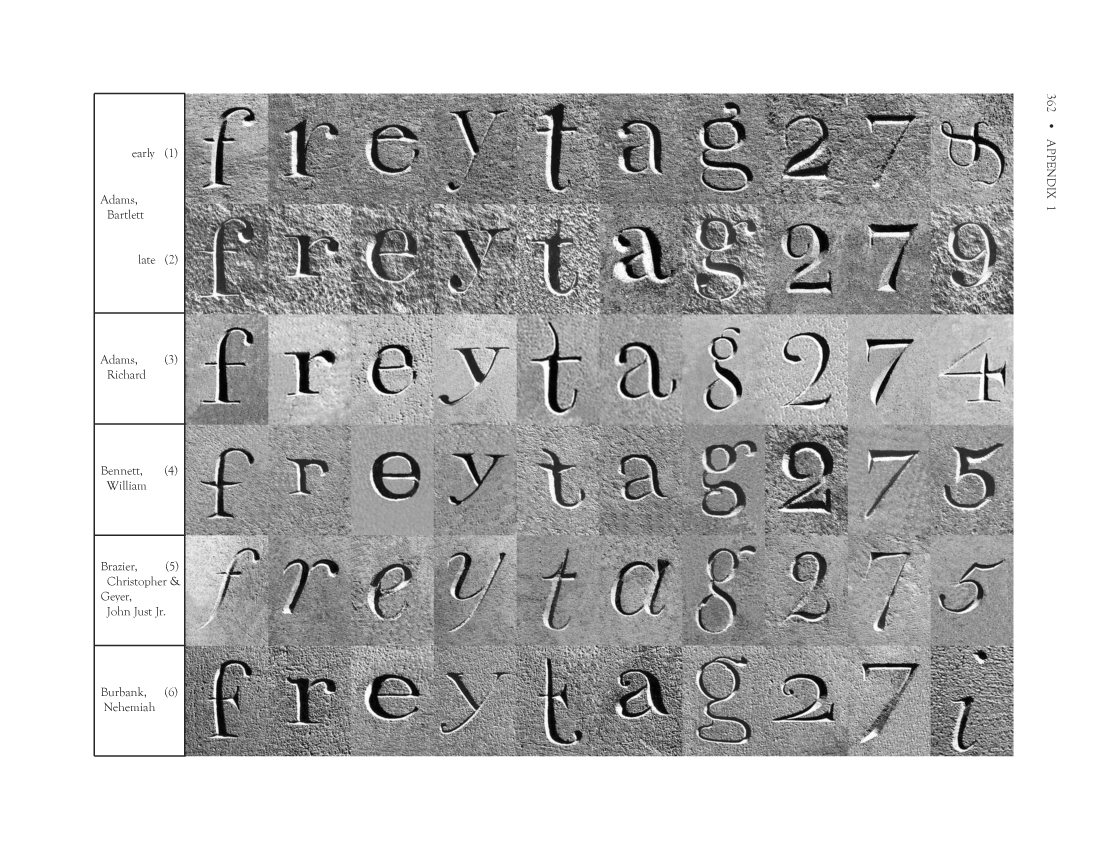 362 • APPENDIX 1
early (1)
f r e y t a g 2 7 &
Adams,
Bartlett
late (2)
f r e y t a g 2 7 9
Adams, (3)
Richard
f r e y t a g 2 7 4
Bennett, (4)
William
f r e y t a g 2 7 5
Brazier, (5)
Christopher &
Geyer,
John Just Jr.
f r e y t a g 2 7 5
Burbank, (6)
Nehemiah
f r e y t a g 2 7 i